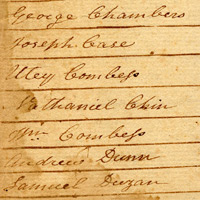 George Chambers
Joseph Case
Utey Combess
Nathaniel Chin
Wm Combess
Andrew Dunn
Samuel Duzan